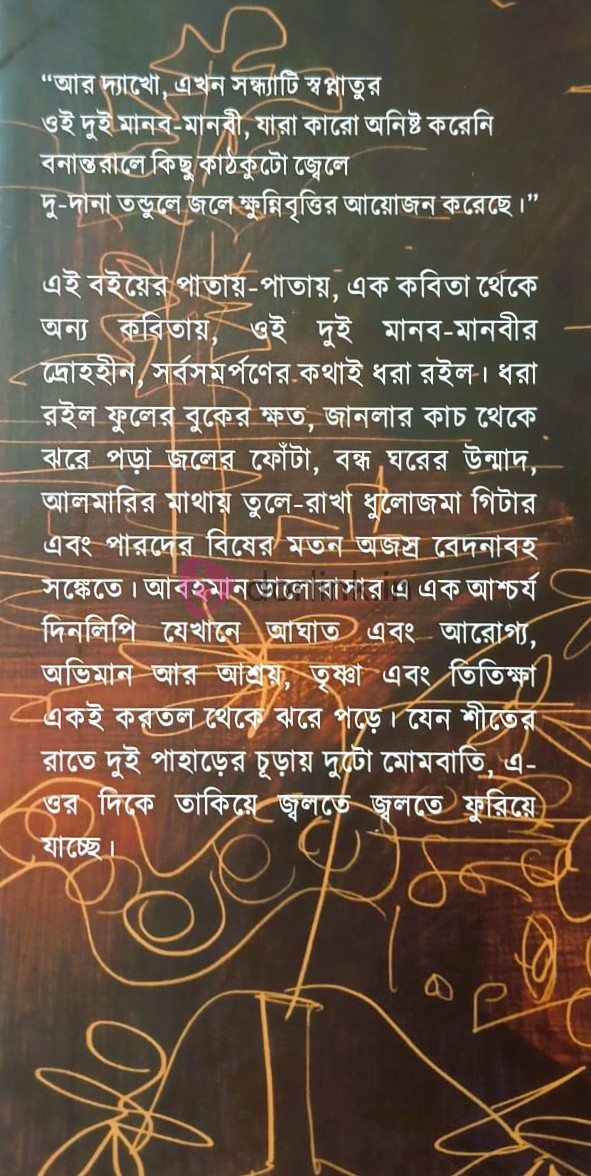 “আর দ্যাখো, এখন সন্ধ্যাটি স্বপ্নাতুর
ওই দুই মানব-মানবী, যারা কারো অনিষ্ট করেনি
বনান্তরালে কিছু কাঠকুটো জ্বেলে
দু-দানা তন্ডুলে জলে ক্ষুন্নিবৃত্তির আয়োজন করেছে।”
এই বইয়ের পাতায়-পাতায়, এক কবিতা থেকে
অন্য কবিতায়, ওই দুই মানব-মানবীর
দ্রোহহীন, সর্বসমর্পণের কথাই ধরা রইল। ধরা
রইল ফুলের বুকের ক্ষত, জানলার কাচ থেকে
ঝরে পড়া জলের ফোঁটা, বন্ধ ঘরের উন্মাদ,
আলমারির মাথায় তুলে-রাখা ধুলোজমা গিটার
এবং পারদের বিষের মতন অজস্র বেদনাবহ
সঙ্কেতে। আবহমান ভালোবাসার এ এক আশ্চর্য
দিনলিপি যেখানে আঘাত এবং আরোগ্য,
অভিমান আর আশ্রয়, তৃষ্ণা এবং তিতিক্ষা
একই করতল থেকে ঝরে পড়ে। যেন শীতের
রাতে দুই পাহাড়ের চূড়ায় দুটো মোমবাতি, এ-
ওর দিকে তাকিয়ে জ্বলতে জ্বলতে ফুরিয়ে
যাচ্ছে।